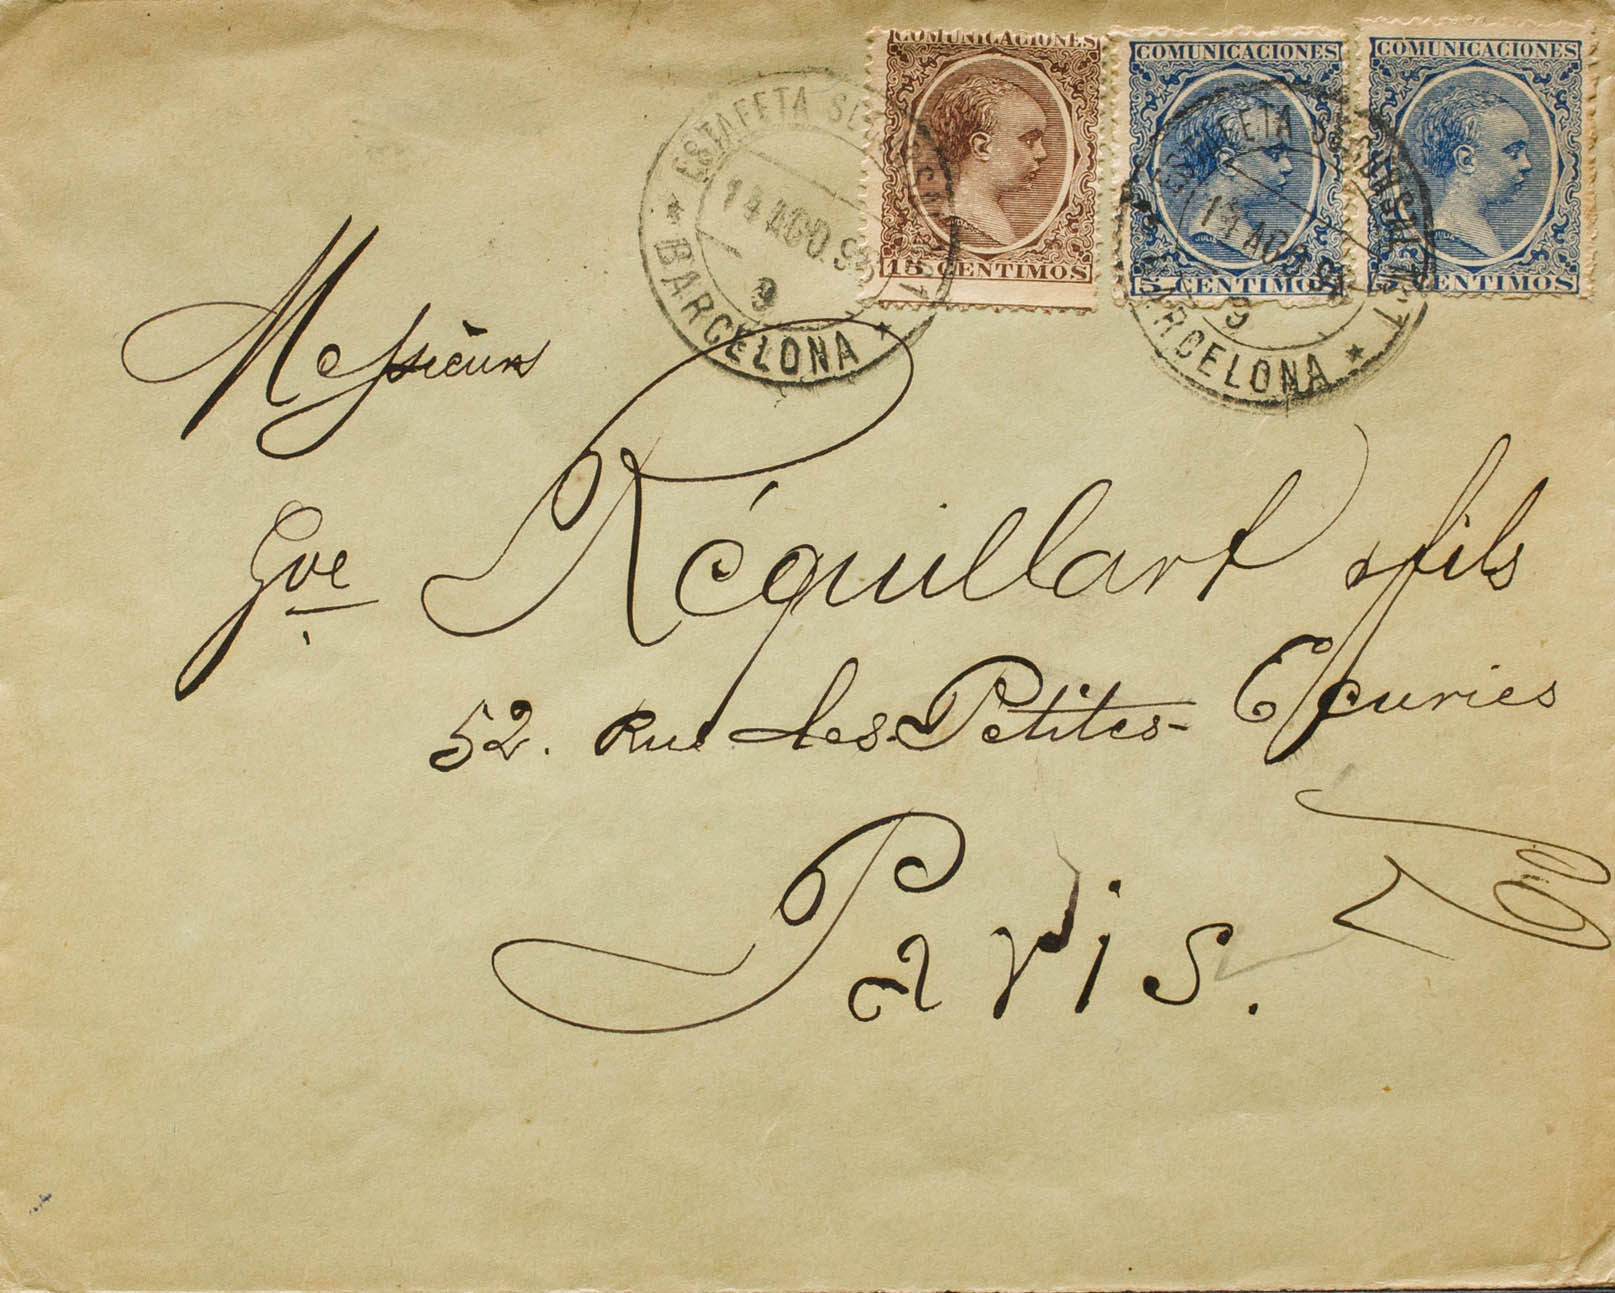 COMUNICACIONES
15 CENTIMOS
COMUNICACIONES
5 CENTIMOS
COMUNICACIONES
5 CENTIMOS
ESTAFETA SUCURSAL Nº 1
14 AGO 9
9
* BARCELONA *
ESTAFETA SUCURSAL Nº 1
14 AGO 9
9
* BARCELONA *
Messieurs
Gve Réquillart & fils
52. Rue des Petites-Ecuries
Paris.